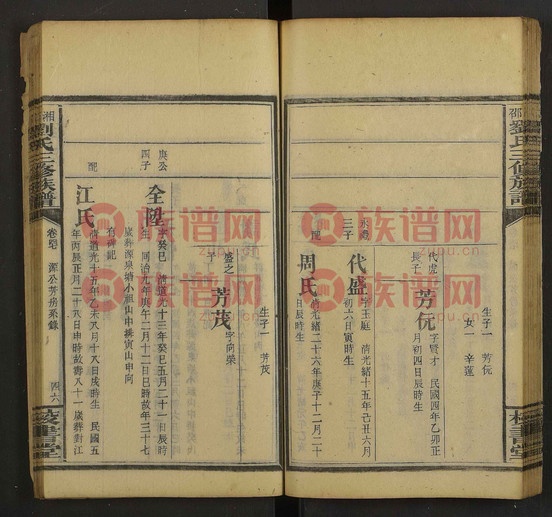 劉氏三修族譜
生子一 芳伝
女一 辛蓮
代虎
長子
芳伝
字賢才 民國四年乙卯正
月初四日辰時生
永
三子
代盛
字玉庭 清光緒十五年己丑六月
初六日寅時生
配
周氏
清光緒二十六年庚子十二月二十
日辰時生
湘
劉氏三修族譜
源公芳房系錄
四六
生子一 芳茂
盛之
子
芳茂
字向榮
庚公
四子
全陞
癸巳 清道光十三年癸巳五月二十一日辰時
生 同治九年庚午二月十二日巳時故年三十七
歲葬源泉塘小組山中排寅山申向
有碑記
配
江氏
清道光十五年乙未八月十八日戌時生 民國五
年丙辰正月二十八日申時故壽八十一歲葬對江
族谱网
zupu.cn
族谱网
zupu.cn